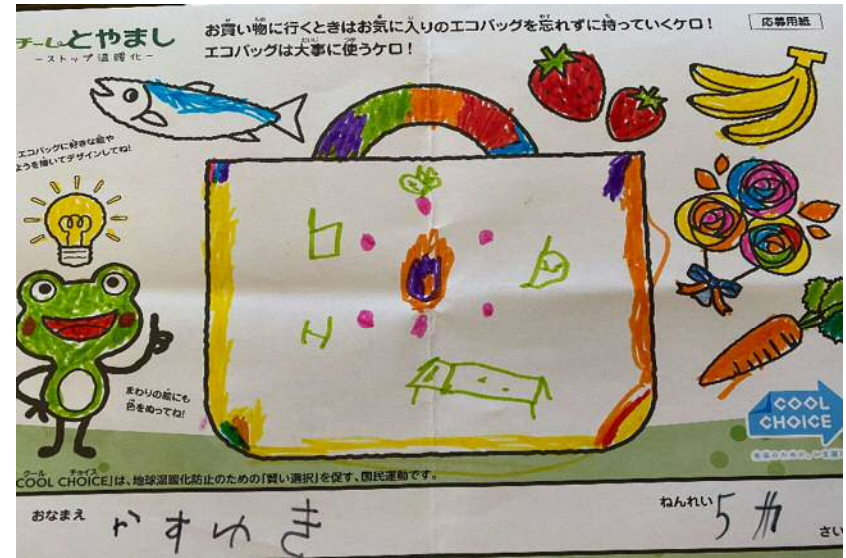 チームとやまし
-ストップ温暖化-
お買い物に行くときはお気に入りのエコバッグを忘れずに持っていくケロ！
エコバッグは大事に使うケロ！
応募用紙
エコバッグに好きな絵や
ようを描いてデザインしてね!
まわりの絵にも
色をぬってね!
COOL
CHOICE
COOL CHOICE」は、地球温暖化防止のための「賢い選択」を促す、国民運動です。
おなまえ かすゆき
ねんれい 5 さい